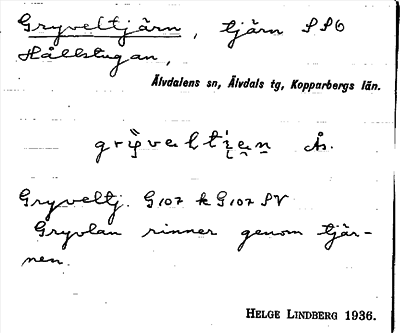 Gryveltjärn, tjärn SSO
Hållstugan,
Älvdalens sn, Älvdals tg, Kopparbergs län.
Ås.
Gryveltj. G107 k G107 SV
Gryvlan rinner genom tjär-
nen.
HELGE LINDBERG 1936.